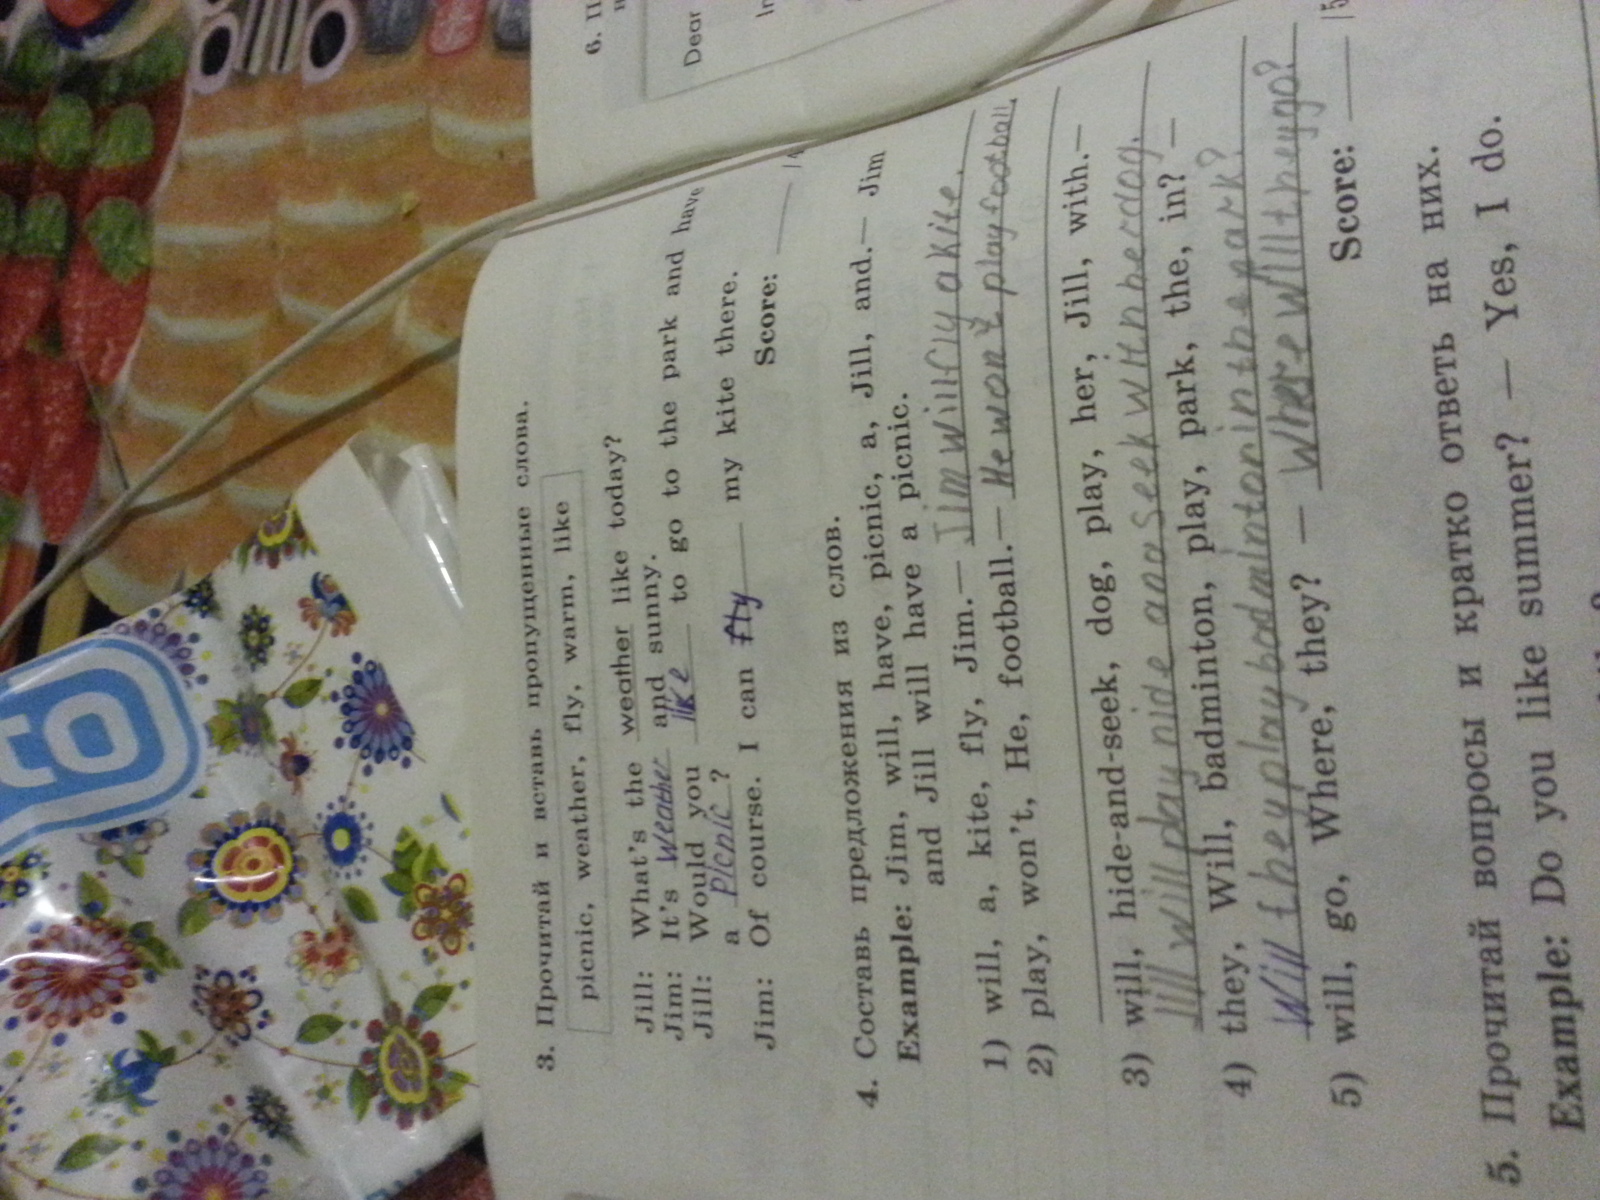 6. П
Dear
In
3. Прочитай и вставь пропущенные слова.
picnic, weather, fly, warm, like
Jill: What's the weather like today?
Jim: It's weather and sunny.
Jill: Would you like to go to the park and have
a picnic?
Jim: Of course. I can fly my kite there.
Score:
4. Составь предложения из слов.
Example: Jim, will, have, picnic, a, Jill, and.— Jim
and Jill will have a picnic.
1) will, a, kite, fly, Jim.— Jim will fly a kite.
2) play, won't, He, football.— He won't play football.
3) will, hide-and-seek, dog, play, her, Jill, with.—
Jill will play hide and seek with her dog.
4) they, Will, badminton, play, park, the, in? —
Will they play badminton in the park?
5) will, go, Where, they? — Where will they go?
Score: /5
5. Прочитай вопросы и кратко ответь на них.
Example: Do you like summer? — Yes, I do.